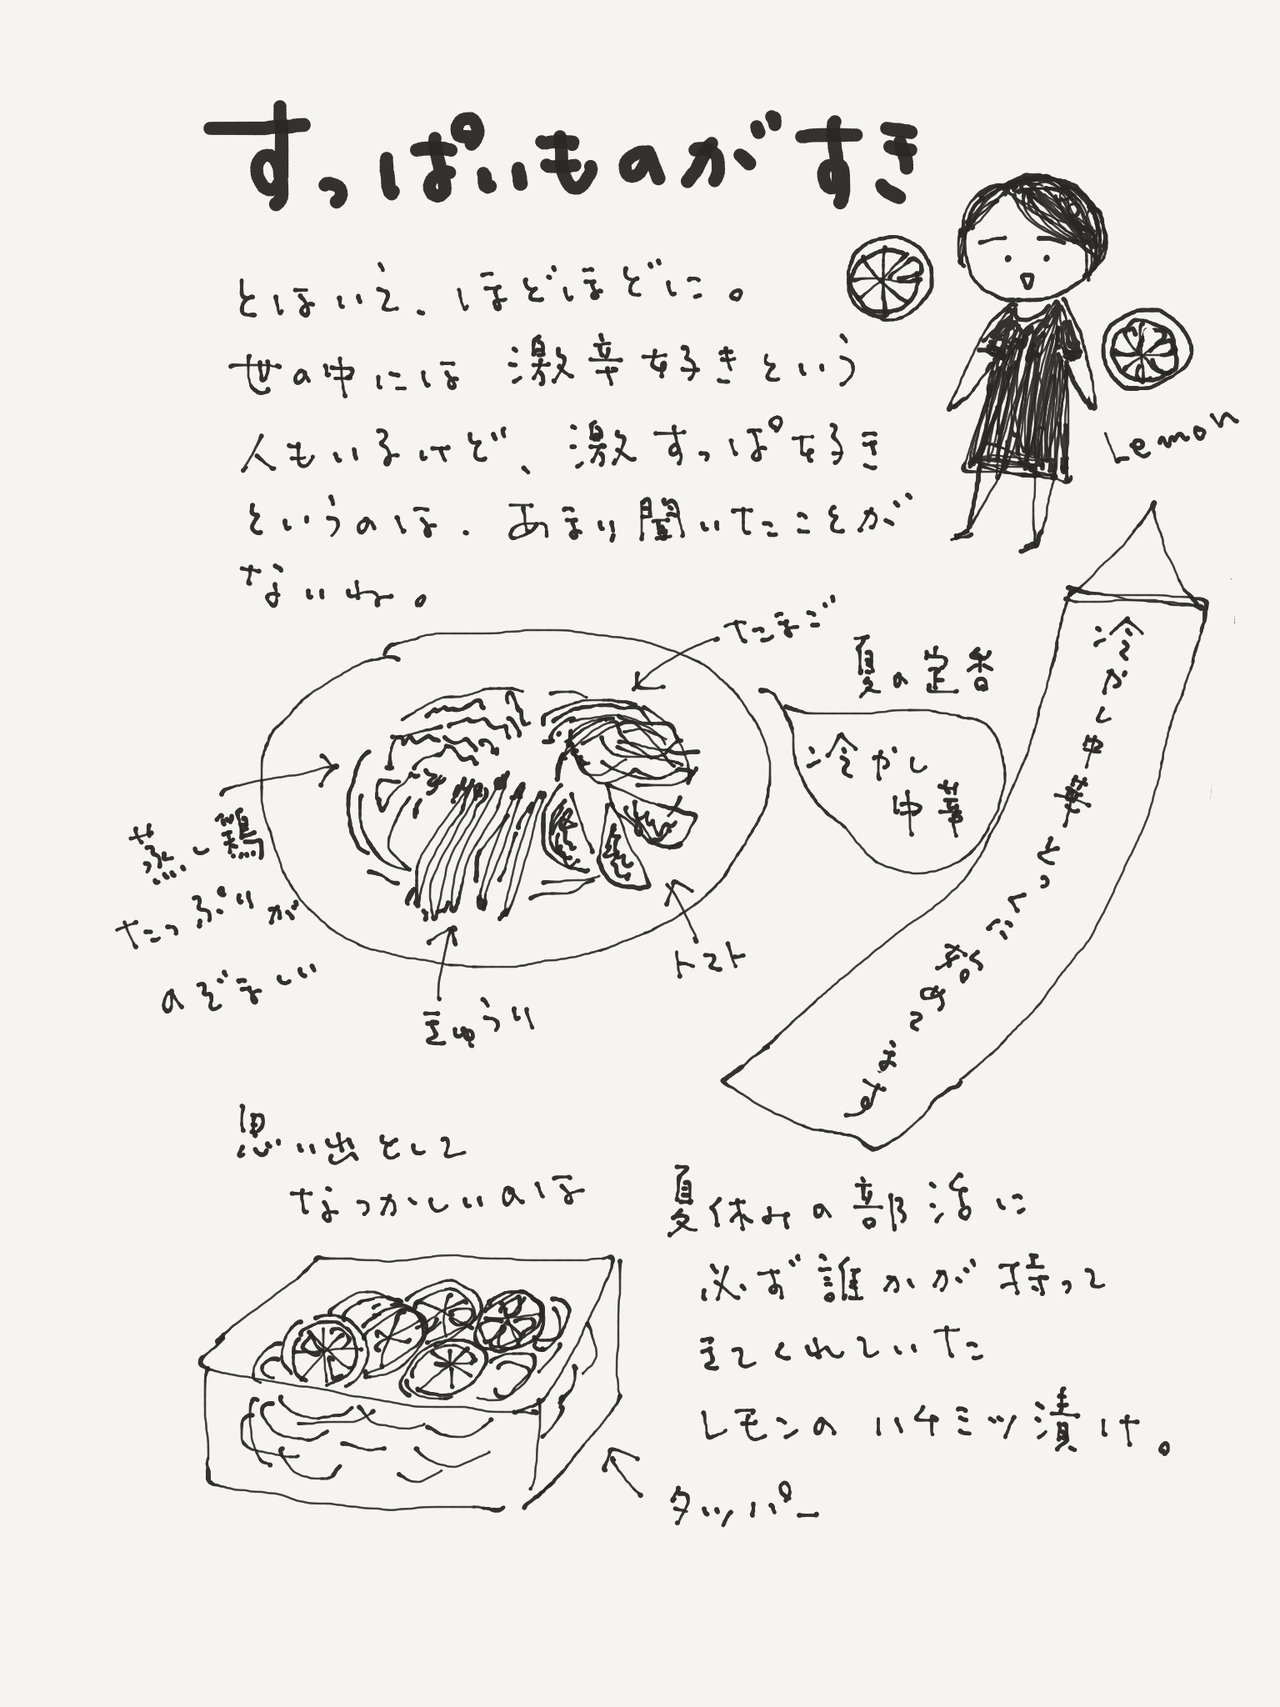 すっぱいものがすき
とはいえ、ほどほどに。
世の中には激辛好きという
人もいるけど、激すっぱ好き
というのは、あまり聞いたことが
ないね。
Lemon
たまご
夏の定番
冷かし
中華
冷かし中華とっくに始めてます
蒸し鶏
たっぷりが
のぞましい
トマト
きゅうり
思い出として
なつかしいのは
夏休みの部活に
必ず誰かが持って
きてくれていた
レモンのハチミツ漬け。
タッパー